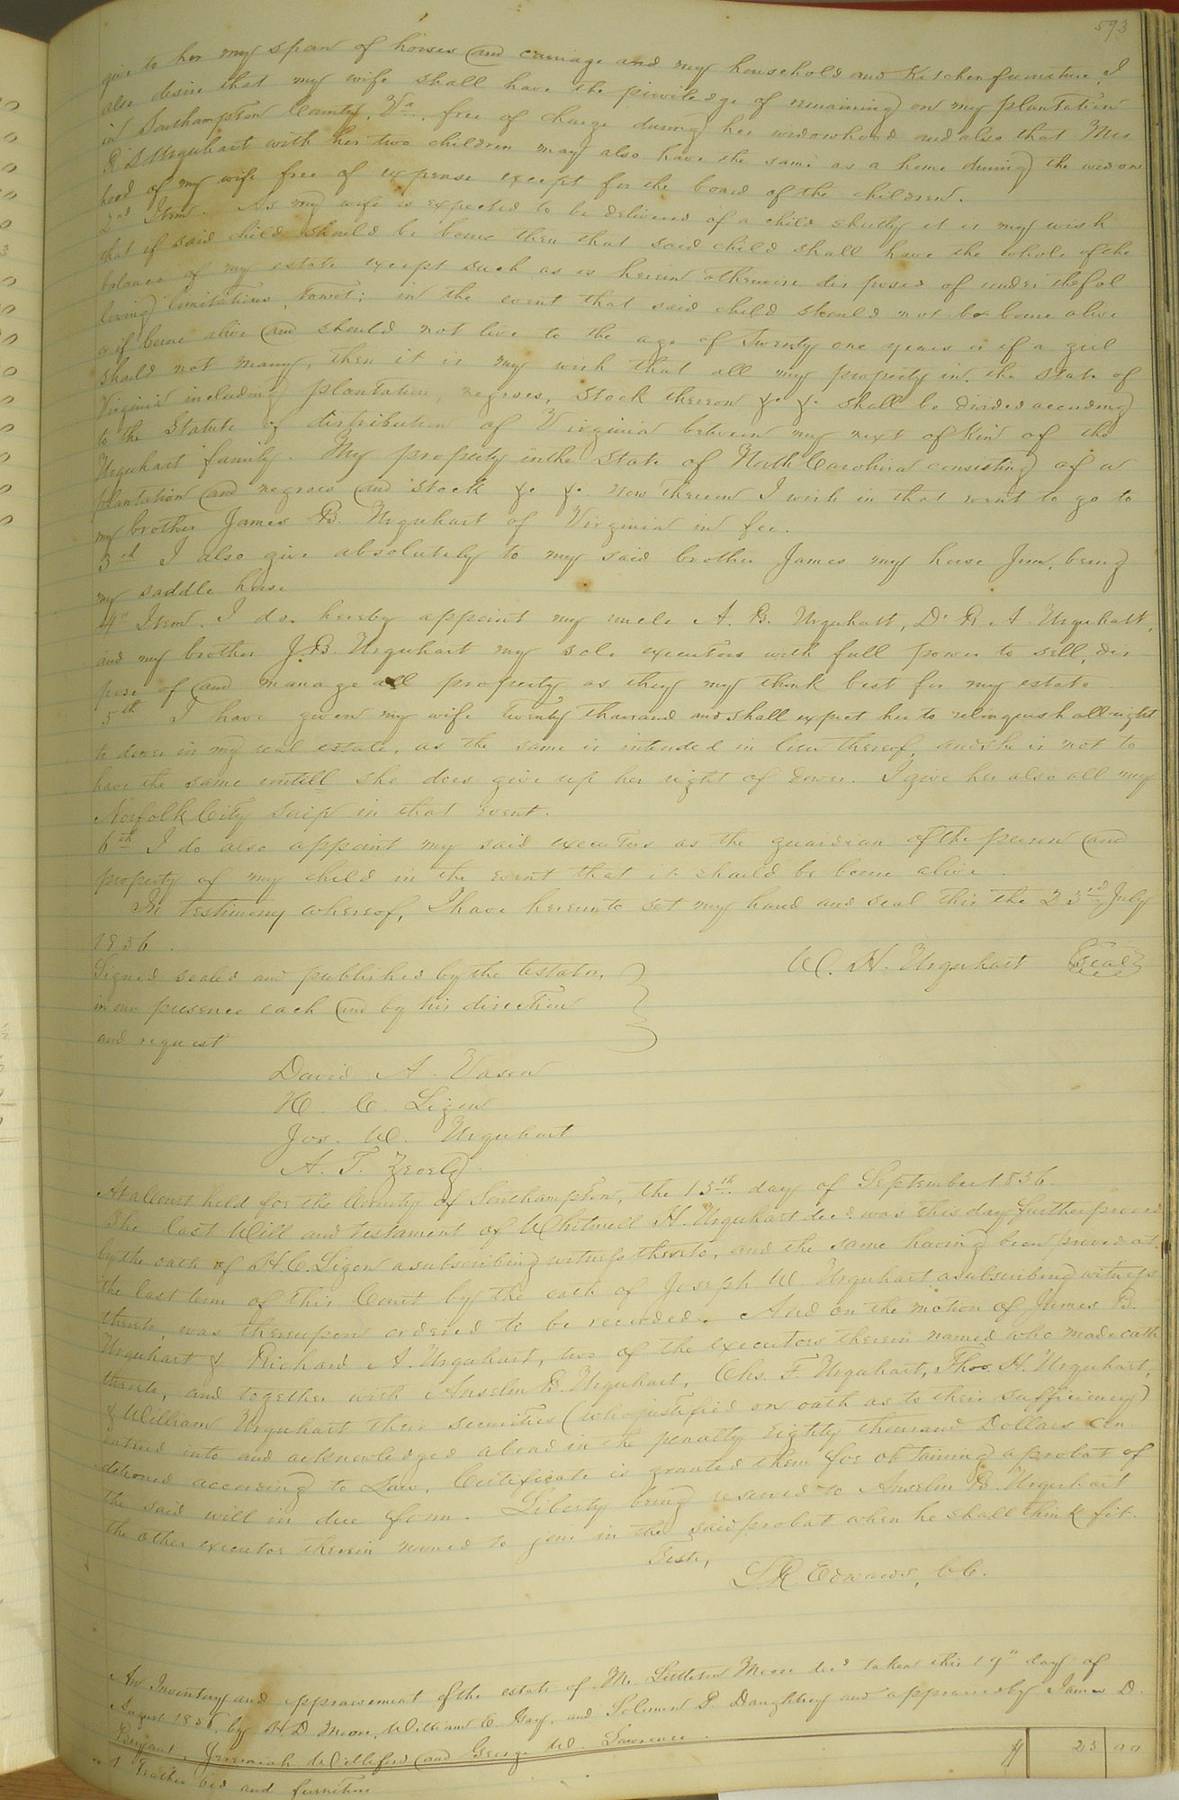 593
give to her my span of horses and carriage and my household and Kitchen furniture. I
also desire that my wife shall have the priviledge of remaining on my plantation
in Southampton County, Va. free of charge during her widowhood and also that Mrs
R S Urquhart with her two children may also have the same as a home during the widow
hood of my wife free of expense except for the board of the children.
2nd Item. As my wife is expected to be delivered of a child shortly it is my wish
that if said child should be borne then that said child shall have the whole of the
balance of my estate except such as is herein otherwise disposed of under the fol
lowing limitations, towit: in the event that said child should not be borne alive
or if borne alive and should not live to the age of Twenty one years or if a girl
should not marry, then it is my wish that all my property in the State of
Virginia including plantation, negroes, Stock thereon &c &c shall be divided according
to the Statute of distribution of Virginia between my next of Kin of the
Urquhart family. My property in the State of North Carolina consisting of a
plantation and negroes and Stock &c &c now thereon I wish in that event to go to
my brother James B. Urquhart of Virginia in fee.
3rd I also give absolutely to my said brother James my horse Jim, being
my saddle horse
4th Item. I do hereby appoint my uncle A. B. Urquhart, Dr R. A. Urquhart,
and my brother J. B. Urquhart my sole executors with full power to sell, dis
pose of and manage all property as they my think best for my estate
5th I have given my wife twenty thousand and shall expect her to relinquish all right
to dower in my real estate, as the same is intended in lieu thereof, and she is not to
have the same untill she does give up her right of dower. I give her also all my
Norfolk City scrip in that event.
6th I do also appoint my said executors as the guardian of the person and
property of my child in the event that it should be borne alive.
In testimony whereof, I have hereunto set my hand and seal this the 23rd July
1856.
W. H. Urquhart Seal
Signed sealed and published by the testator,
in our presence each and by his direction
and request
David A. Vason
H. C. Ligon
Jos. W. Urquhart
A. T.
At a Court held for the County of Southampton, the 15th day of September 1856.
The last Will and testament of Whitmell H. Urquhart decd. was this day further proved
by the oath of H. C. Ligon a subscribing witness thereto, and the same having been proved at
the last term of this Court by the oath of Joseph W. Urquhart a subscribing witness
thereto, was thereupon ordered to be recorded. And on the motion of James B.
Urquhart & Richard A. Urquhart, two of the executors therein named who made oath
thereto, and together with Anselm B. Urquhart, Chs. F. Urquhart, Thos. H. Urquhart,
& William Urquhart their securities (who justified on oath as to their sufficiency)
entered into and acknowledged a bond in the penalty Eighty thousand Dollars con
ditioned according to Law, Certificate is granted them for obtaining a probat of
the said will in due form. Liberty being reserved to Anselm B. Urquhart
the other executor therein named to join in the said probat when he shall think fit.
Teste,
L R Edwards, C C.
An Inventory and appraisement of the estate of Littleton Moore decd taken this 19th day of
August 1856, by H. D. Moore, William E. Gay, and Solomon P. Daughtrey and appraised by James D.
Bryant, Jeremiah Williford and George W. Lawrence.
1 Feather bed and furniture $ 25 00